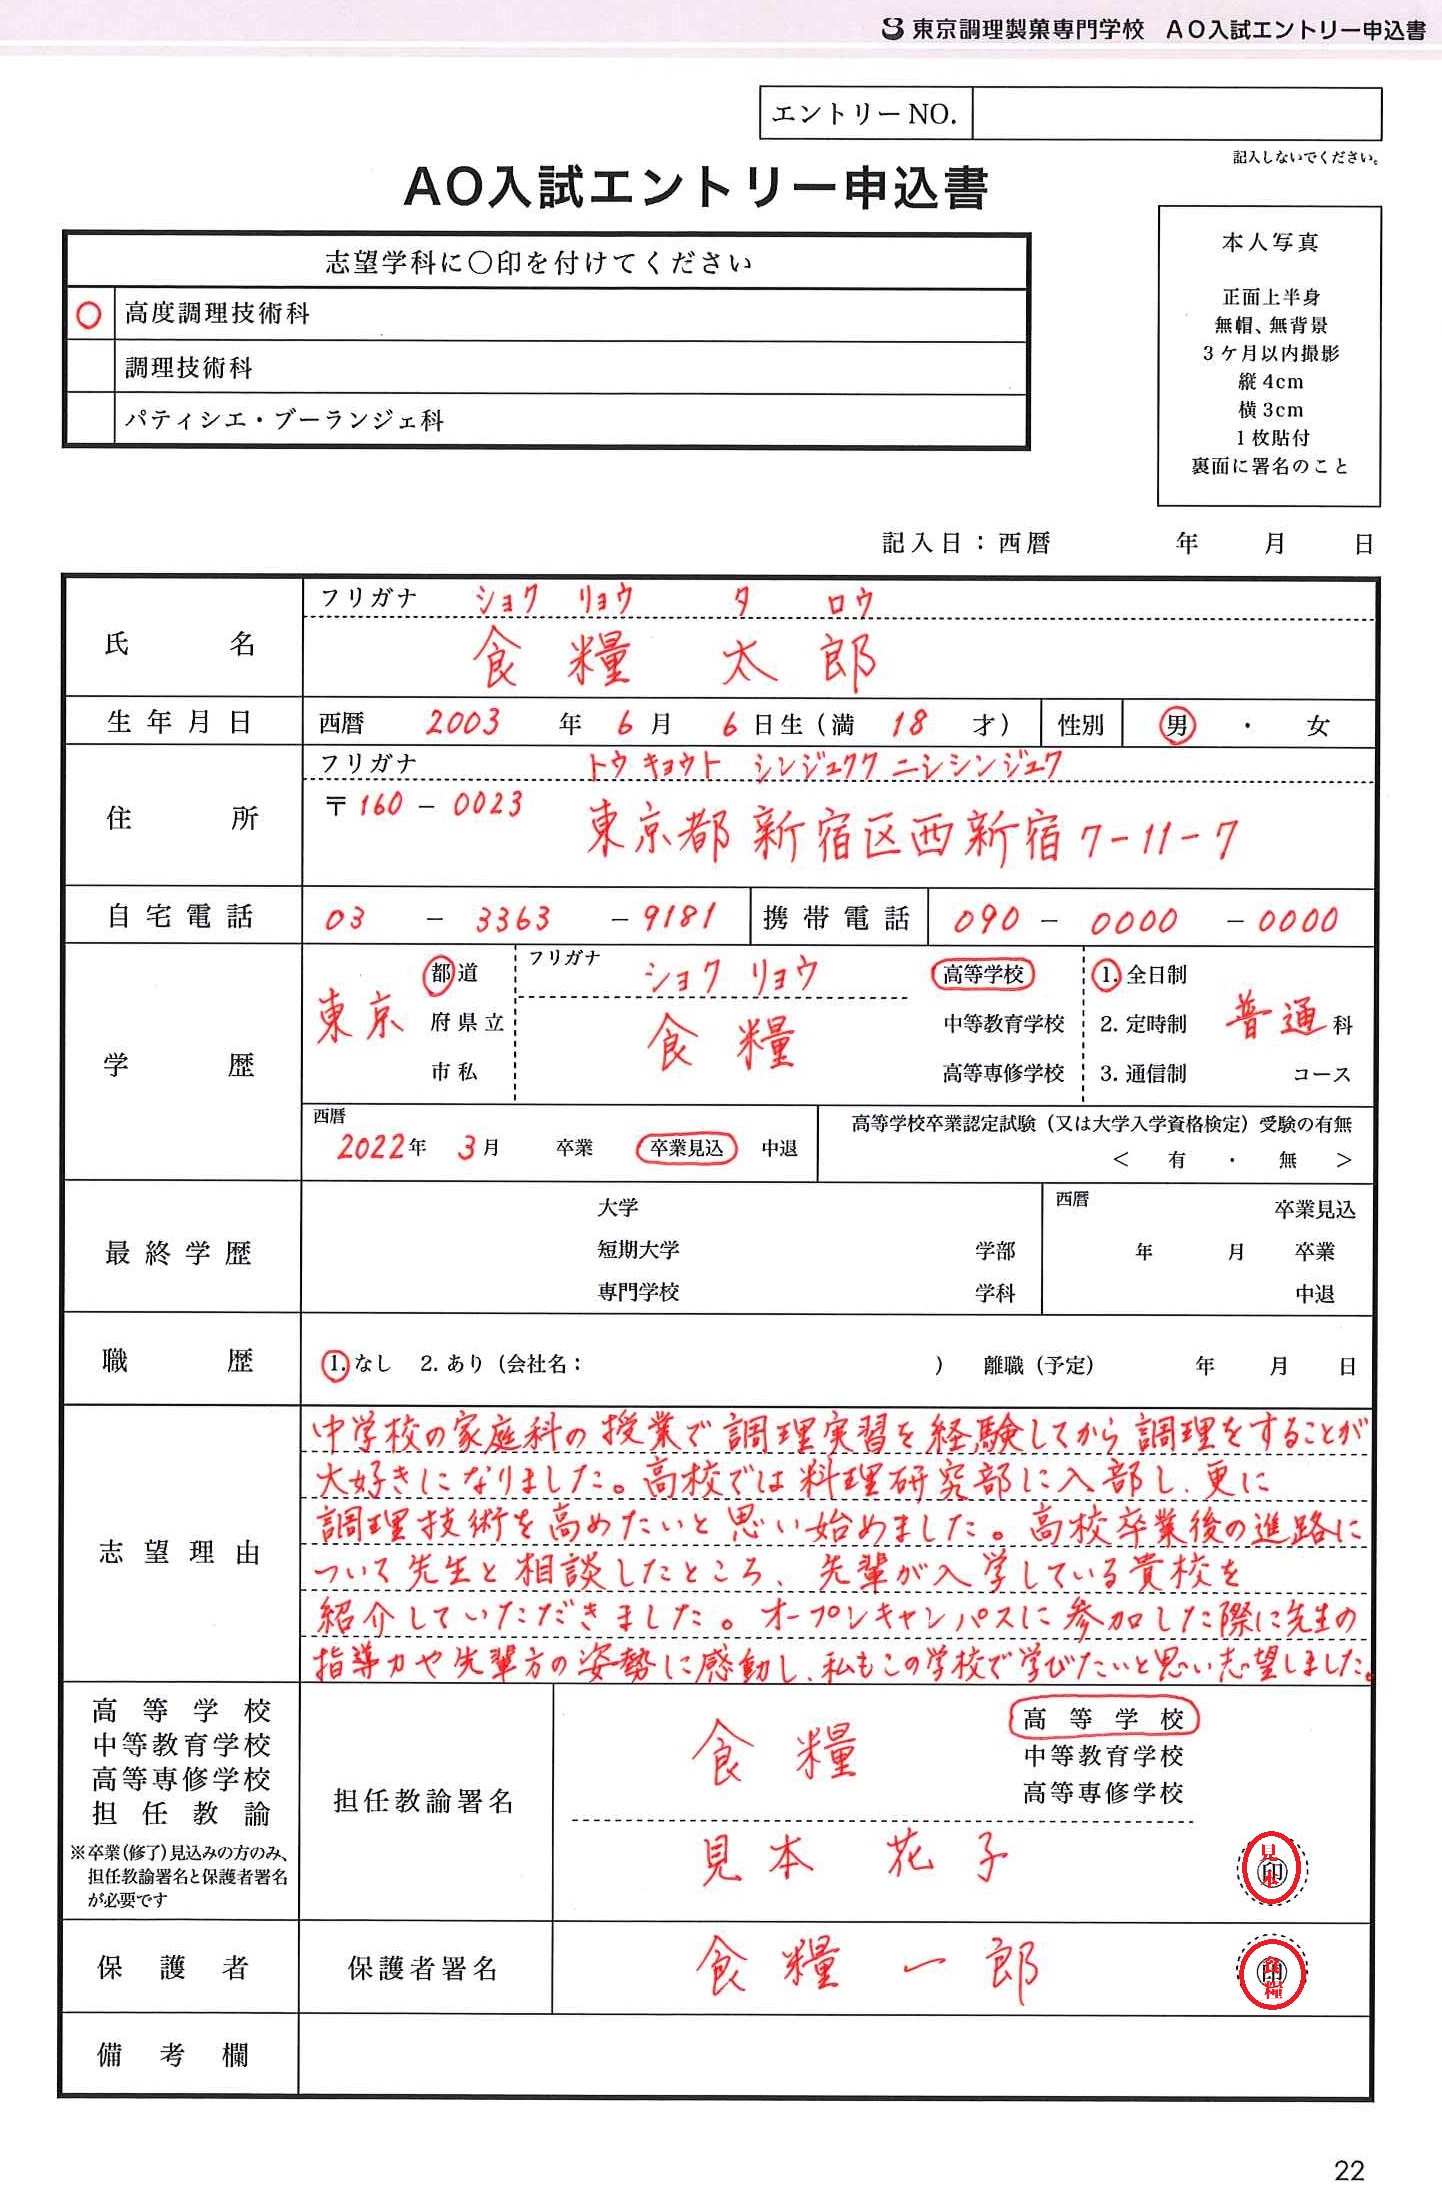 東京調理製菓専門学校 AO入試エントリー申込書
エントリーNO.
記入しないでください。
AO入試エントリー申込書
志望学科に〇印を付けてください
〇 高度調理技術科
調理技術科
パティシエ・ブーランジェ科
本人写真
正面上半身
無帽、無背景
3ケ月以内撮影
縦4cm
横3cm
1枚貼付
裏面に署名のこと
記入日：西暦 年 月 日
氏名
フリガナ ショク リョウ タ ロウ
食糧 太郎
生年月日 西暦 2003 年 6 月 6 日生(満 18 才) 性別 男 ・ 女
住所
フリガナ トウキョウト シンジュクク ニシシンジュク
〒160-0023 東京都新宿区西新宿7-11-7
自宅電話 03 - 3363 - 9181 携帯電話 090 - 0000 - 0000
学歴
東京 都道
府県立
市私
フリガナ ショク リョウ
食糧
高等学校
中等教育学校
高等専修学校
1. 全日制
2. 定時制
3. 通信制
普通 科
コース
西暦
2022年 3月 卒業 卒業見込 中退
高等学校卒業認定試験（又は大学入学資格検定）受験の有無
＜ 有 ・ 無 ＞
最終学歴
大学
短期大学
専門学校
学部
学科
西暦
年 月
卒業見込
卒業
中退
職歴 1. なし 2. あり（会社名： ） 離職（予定） 年 月 日
志望理由
中学校の家庭科の授業で調理実習を経験してから調理をすることが
大好きになりました。高校では料理研究部に入部し、更に
調理技術を高めたいと思い始めました。高校卒業後の進路に
ついて先生と相談したところ、先輩が入学している貴校を
紹介していただきました。オープンキャンパスに参加した際に先生の
指導力や先輩方の姿勢に感動し、私もこの学校で学びたいと思い志望しました。
高等学校
中等教育学校
高等専修学校
担任教諭
※卒業(修了)見込みの方のみ、
担任教諭署名と保護者署名
が必要です
担任教諭署名
食糧
高等学校
中等教育学校
高等専修学校
見本 花子
見本 印
保護者 保護者署名 食糧 一郎
食糧 印
備考欄
22